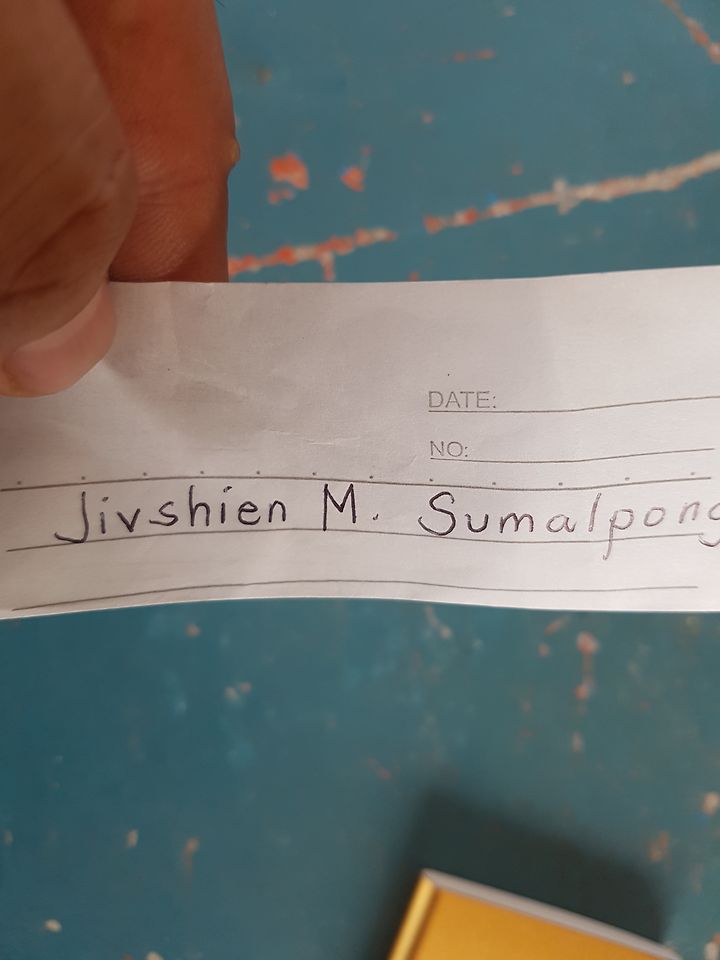 DATE:
NO:
Jivshien M. Sumalpong